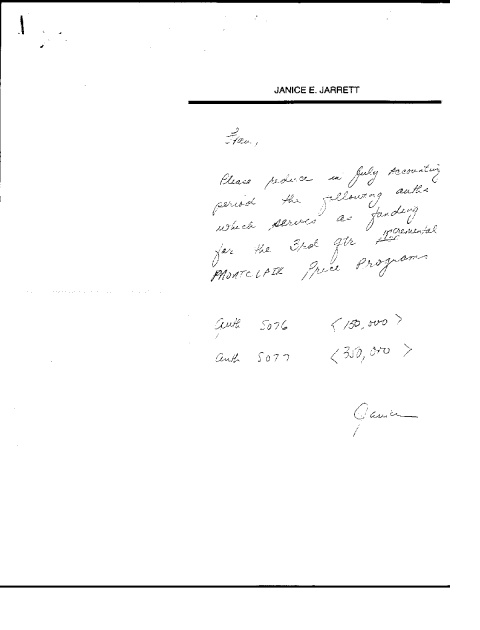 JANICE E. JARRETT
Fran,
Please reduce in July Accounting
period the following auths
which serves as funding
for the 3rd qtr incremental
Price Programs
Auth 5076 <150,000>
Auth 5077 <350,000>
Janice